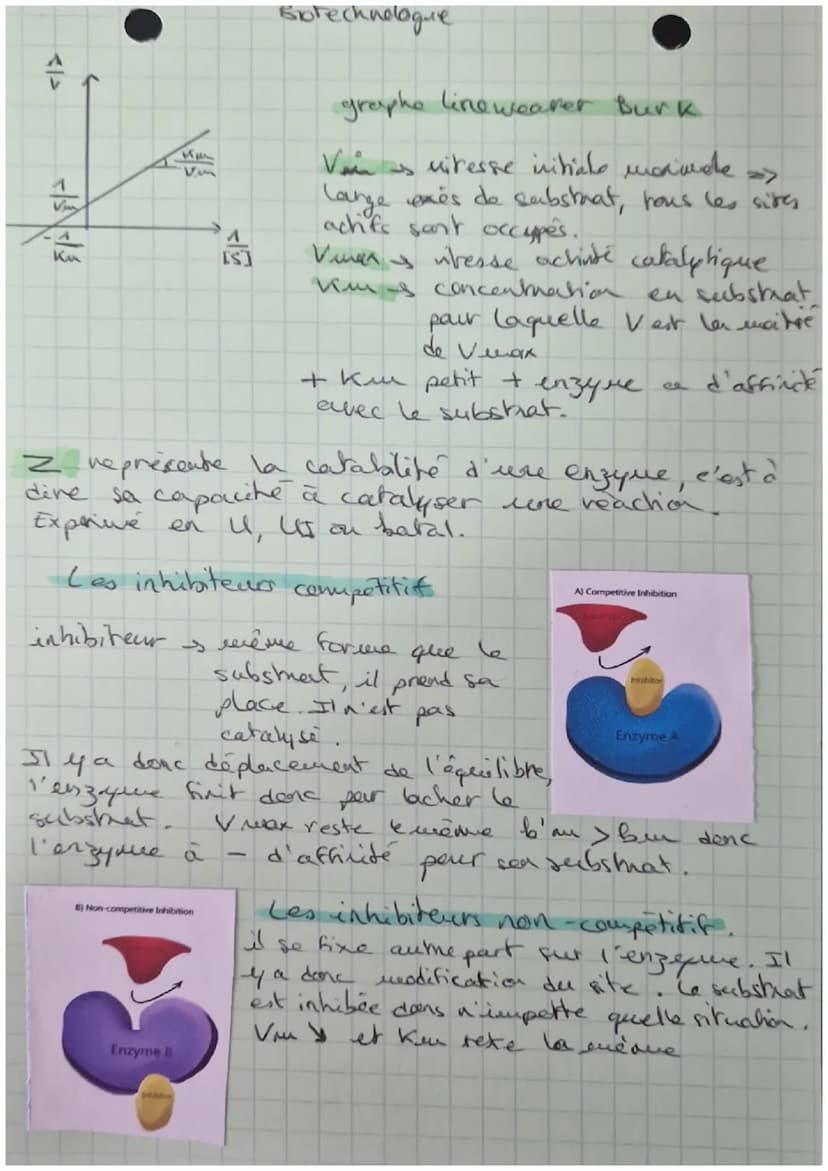 Biotechnologue
graphe lineweaver Burk
1/V
Km/Vm
1/Vm
-1/Km
1/[S]
Vm → vitesse initiale maximale =>
large excès de substrat, tous les sites
actifs sont occupés.
Vmax → vitesse activité catalytique
Km → concentration en substrat
pour laquelle V est la moitié
de Vmax
+ Km petit + enzyme a d'affinité
avec le substrat.
Z représente la catabilité d'une enzyme, c'est à
dire sa capacité à catalyser une réaction.
Exprimé en U, UI ou katal.
Les inhibiteurs compétitif
A) Competitive Inhibition
Inhibitor
Enzyme A
inhibiteur → même forme que le
substrat, il prend sa
place. Il n'est pas
catalysé.
Il y a donc déplacement de l'équilibre,
l'enzyme finit donc par lacher le
substrat. Vmax reste le même k'm > km donc
l'enzyme à - d'affinité pour son substrat.
B) Non-competitive Inhibition
Enzyme B
Inhibitor
Les inhibiteurs non-compétitif.
il se fixe autre part sur l'enzyme. Il
y a donc modification du site. Le substrat
est inhibée dans n'impotte quelle situation.
Vm ↘ et Km reste la même